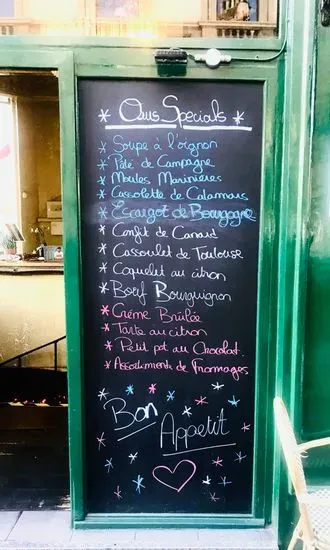 * Our Specials *
* Soupe à l'oignon
* Pâté de Campagne
* Moules Marinières
* Cassolette de Calamars
* Escargot de Bourgogne
* Confit de Canard
* Cassoulet de Toulouse
* Coquelet au citron
* Boeuf Bourguignon
* Crème Brûlée
* Tarte au citron
* Petit pot au Chocolat
* Assortiments de Fromages
Bon
Appetit